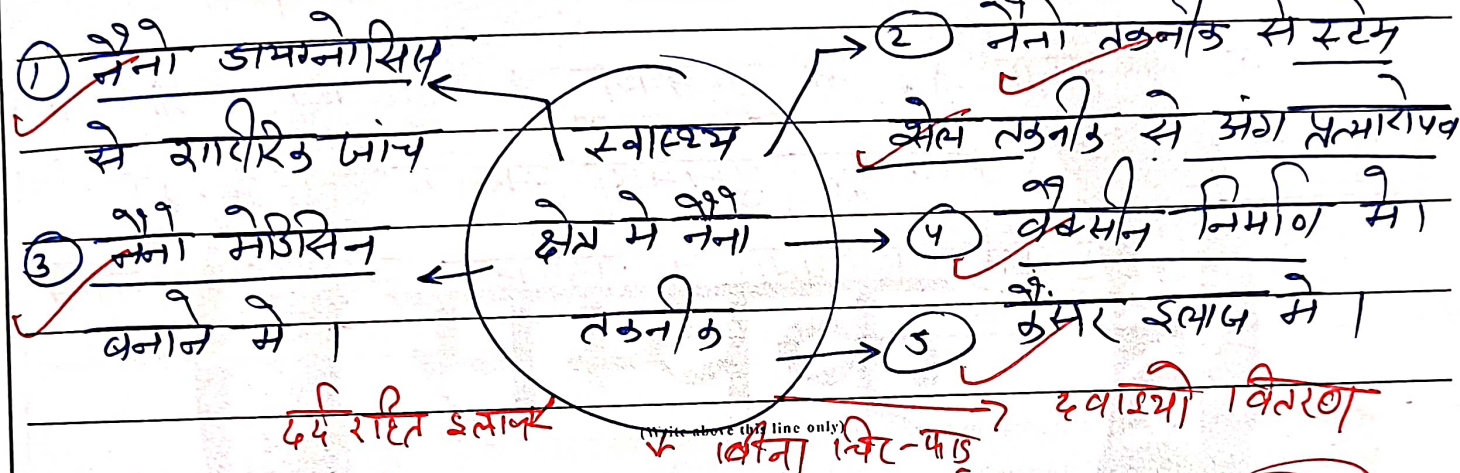 ① नैनो डायग्नोसिस
से शारीरिक जांच
② नैनो तकनीक से स्टेम
सेल तकनीक से अंग प्रत्यारोपण
स्वास्थ्य
क्षेत्र मे नैनो
तकनीक
③ नैनो मेडिसिन
बनाने मे ।
④ वैक्सीन निर्माण मे ।
⑤ कैंसर इलाज मे ।
दर्द रहित इलाज
(Write above this line only)
बिना चिर-फाड़
दवाइयो वितरण